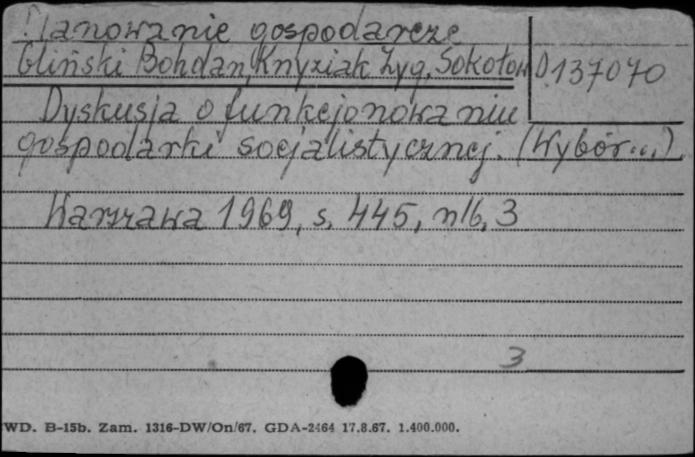 Planowanie gospodarcze
Gliński Bohdan, Knyziak Zyg, Sokołow
D.137070
Dyskusja o funkcjonowaniu
gospodarki socjalistycznej. (Wybór...)
Warszawa 1969, s. 445, nlb, 3
3
WD. B-15b. Zam. 1316-DW/On/67. GDA-2464 17.8.67. 1.400.000.